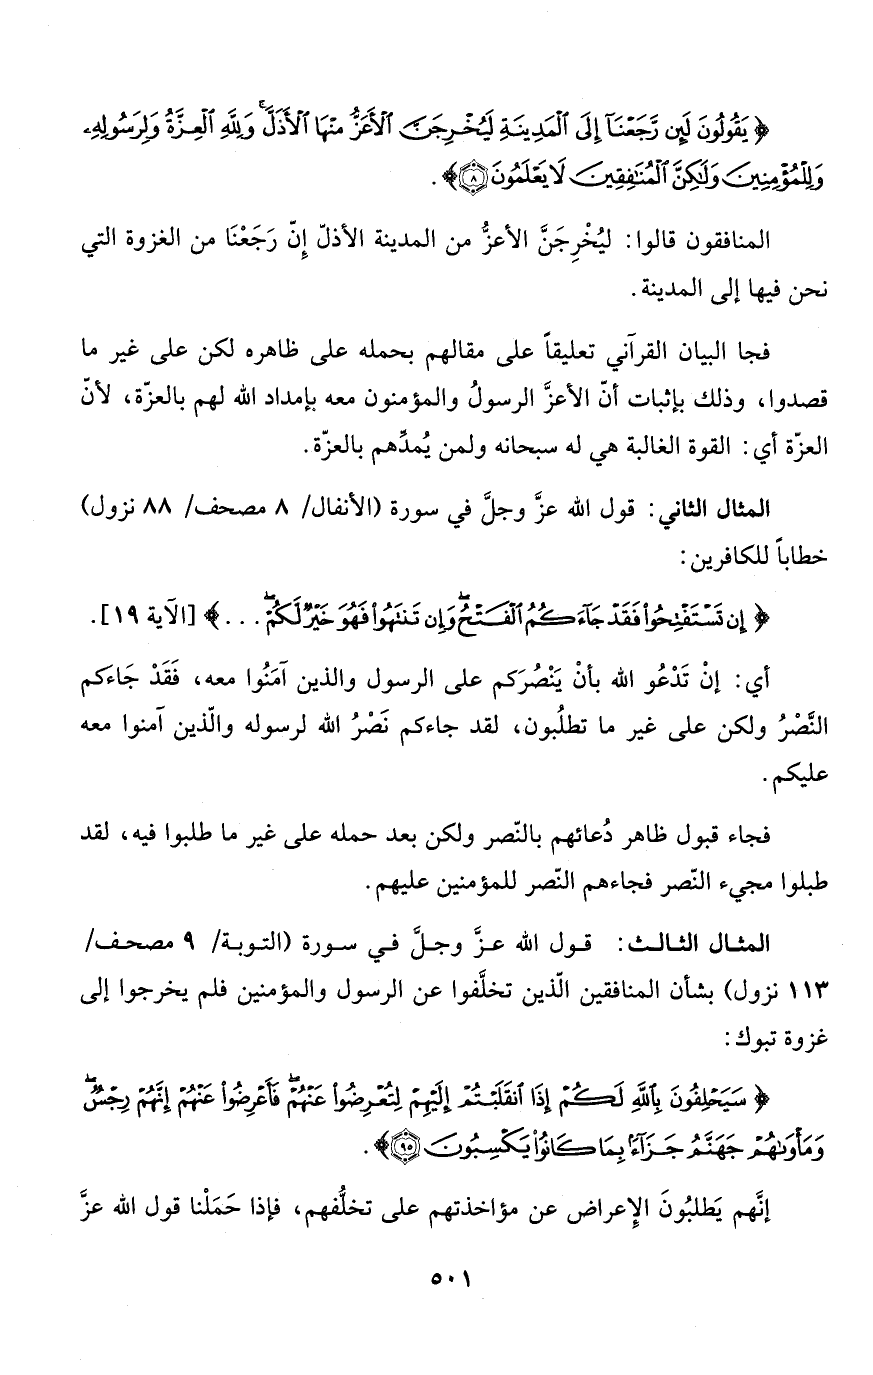 ﴿يَقُولُونَ لَئِن رَّجَعْنَآ إِلَى ٱلْمَدِينَةِ لَيُخْرِجَنَّ ٱلْأَعَزُّ مِنْهَا ٱلْأَذَلَّ ۚ وَلِلَّهِ ٱلْعِزَّةُ وَلِرَسُولِهِۦ
وَلِلْمُؤْمِنِينَ وَلَٰكِنَّ ٱلْمُنَٰفِقِينَ لَا يَعْلَمُونَ ٨﴾.
المنافقون قالوا: ليُخْرِجَنَّ الأعزُّ من المدينة الأذلّ إنّ رَجَعْنَا من الغزوة التي
نحن فيها إلى المدينة.
فجا البيان القرآني تعليقاً على مقالهم بحمله على ظاهره لكن على غير ما
قصدوا، وذلك بإثبات أنّ الأعزَّ الرسولُ والمؤمنون معه بإمداد الله لهم بالعزّة، لأنّ
العزّة أي: القوة الغالبة هي له سبحانه ولمن يُمدِّهم بالعزّة.
المثال الثاني: قول الله عزَّ وجلَّ في سورة (الأنفال/ ٨ مصحف/ ٨٨ نزول)
خطاباً للكافرين:
﴿إِن تَسْتَفْتِحُوا۟ فَقَدْ جَآءَكُمُ ٱلْفَتْحُ ۖ وَإِن تَنتَهُوا۟ فَهُوَ خَيْرٌ لَّكُمْ ۖ ...﴾ [الآية ١٩].
أي: إنْ تَدْعُو الله بأنْ يَنْصُرَكم على الرسول والذين آمَنُوا معه، فَقَدْ جَاءكم
النَّصْرُ ولكن على غير ما تطلُبون، لقد جاءكم نَصْرُ الله لرسوله والّذين آمنوا معه
عليكم.
فجاء قبول ظاهر دُعائهم بالنّصر ولكن بعد حمله على غير ما طلبوا فيه، لقد
طبلوا مجيء النّصر فجاءهم النّصر للمؤمنين عليهم.
المثال الثالث: قول الله عزَّ وجلَّ في سورة (التوبة/ ٩ مصحف/
١١٣ نزول) بشأن المنافقين الّذين تخلَّفوا عن الرسول والمؤمنين فلم يخرجوا إلى
غزوة تبوك:
﴿سَيَحْلِفُونَ بِٱللَّهِ لَكُمْ إِذَا ٱنقَلَبْتُمْ إِلَيْهِمْ لِتُعْرِضُوا۟ عَنْهُمْ ۖ فَأَعْرِضُوا۟ عَنْهُمْ إِنَّهُمْ رِجْسٌ ۖ
وَمَأْوَىٰهُمْ جَهَنَّمُ جَزَآءًۢ بِمَا كَانُوا۟ يَكْسِبُونَ ٩٥﴾.
إنَّهم يَطلبُونَ الإعراض عن مؤاخذتهم على تخلُّفهم، فإذا حَمَلْنا قول الله عزَّ
٥٠١